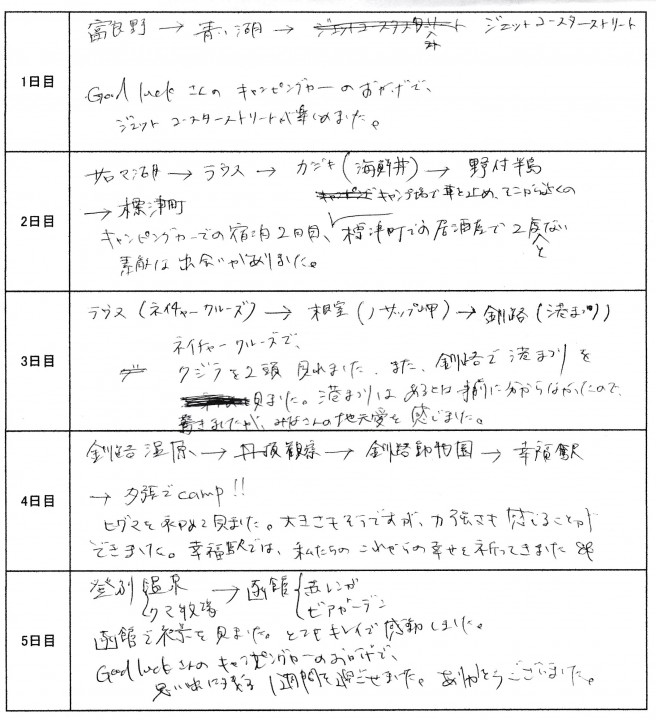 1日目
富良野 → 青い湖 → ジェットコースターストリート
Good luckさんのキャンピングカーのおかげで、
ジェットコースターストリートが楽しめました。
2日目
サロマ湖 → ラウス → カジキ(海鮮丼) → 野付半島
キャンプ場で車を止め、そこから近くの
→ 標津町
キャンピングカーでの宿泊2日目、標津町での居酒屋で2度とない
素敵な出会いがありました。
3日目
ラウス(ネイチャークルーズ) → 根室(ノサップ岬) → 釧路(港まつり)
ネイチャークルーズで、
クジラを2頭見れました。また、釧路で港まつりを
見ました。港まつりはあるとは事前に分からなかったので、
驚きましたが、みなさんの地元愛を感じました。
4日目
釧路湿原 → 丹頂観察 → 釧路動物園 → 幸福駅
→ 夕張でcamp!!
ヒグマを初めて見ました。大きさもそうですが、力強さも感じることが
できました。幸福駅では、私たちのこれからの幸せを祈ってきました
5日目
登別 温泉 → 函館 赤レンガ
クマ牧場 ビアガーデン
函館で夜景を見ました。とてもキレイで感動しました。
Good luckさんのキャンピングカーのおかげで、
思い出に残る1週間を過ごせました。ありがとうございました。